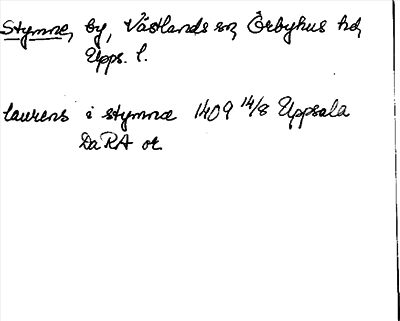 Stymne, by, Västlands sn, Örbyhus hd,
Upps. l.
laurens i stymnæ 1409 14/8 Uppsala
DaRA or.